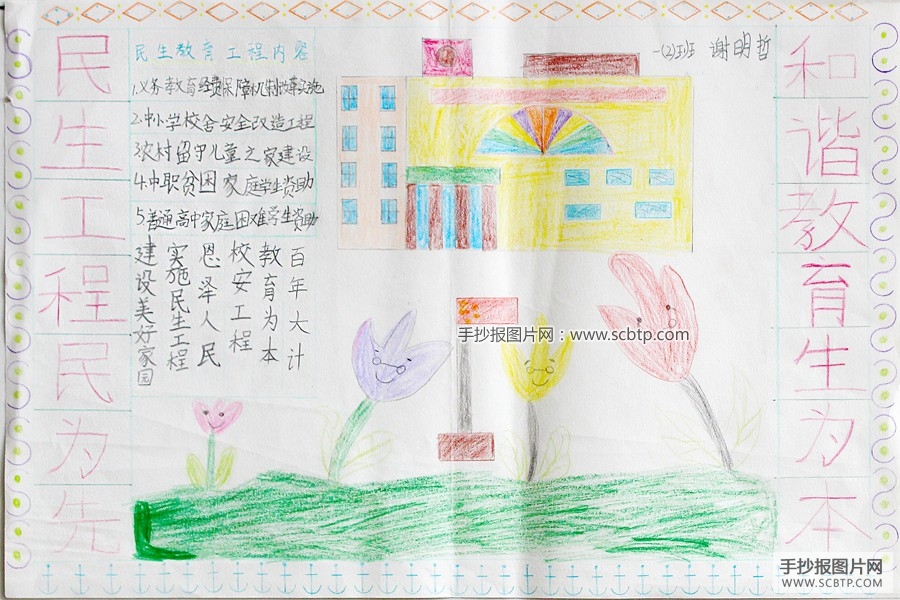 民生工程民为先
民生教育工程内容
1.义务教育经费保障机制改革实施
2.中小学校舍安全改造工程
3农村留守儿童之家建设
4.中职贫困家庭学生资助
5普通高中家庭困难学生资助
百年大计
教育为本
校安工程
恩泽人民
实施民生工程
建设美好家园
一(2)班 谢明哲
和谐教育生为本
手抄报图片网：www.scbtp.com
手抄报图片网
WWW.SCBTP.COM